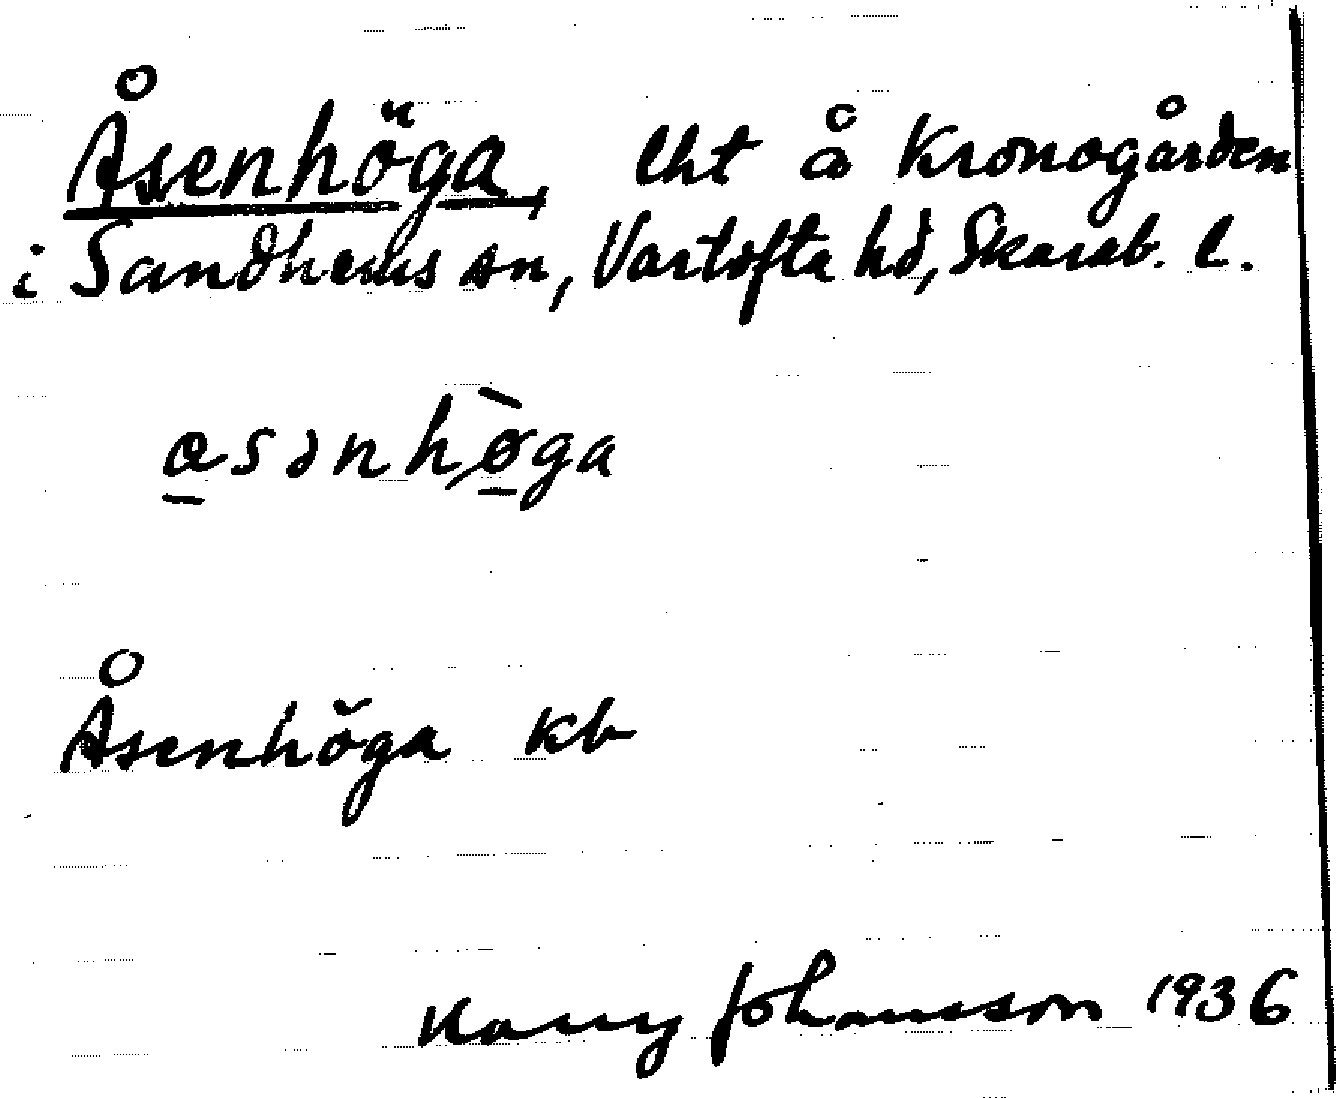 Åsenhöga, lht å Kronogården
i Sandhems sn, Vartofta hd, Skarab. l.
a̱sənhø̱̀ga
Åsenhöga kb
Harry Johansson 1936